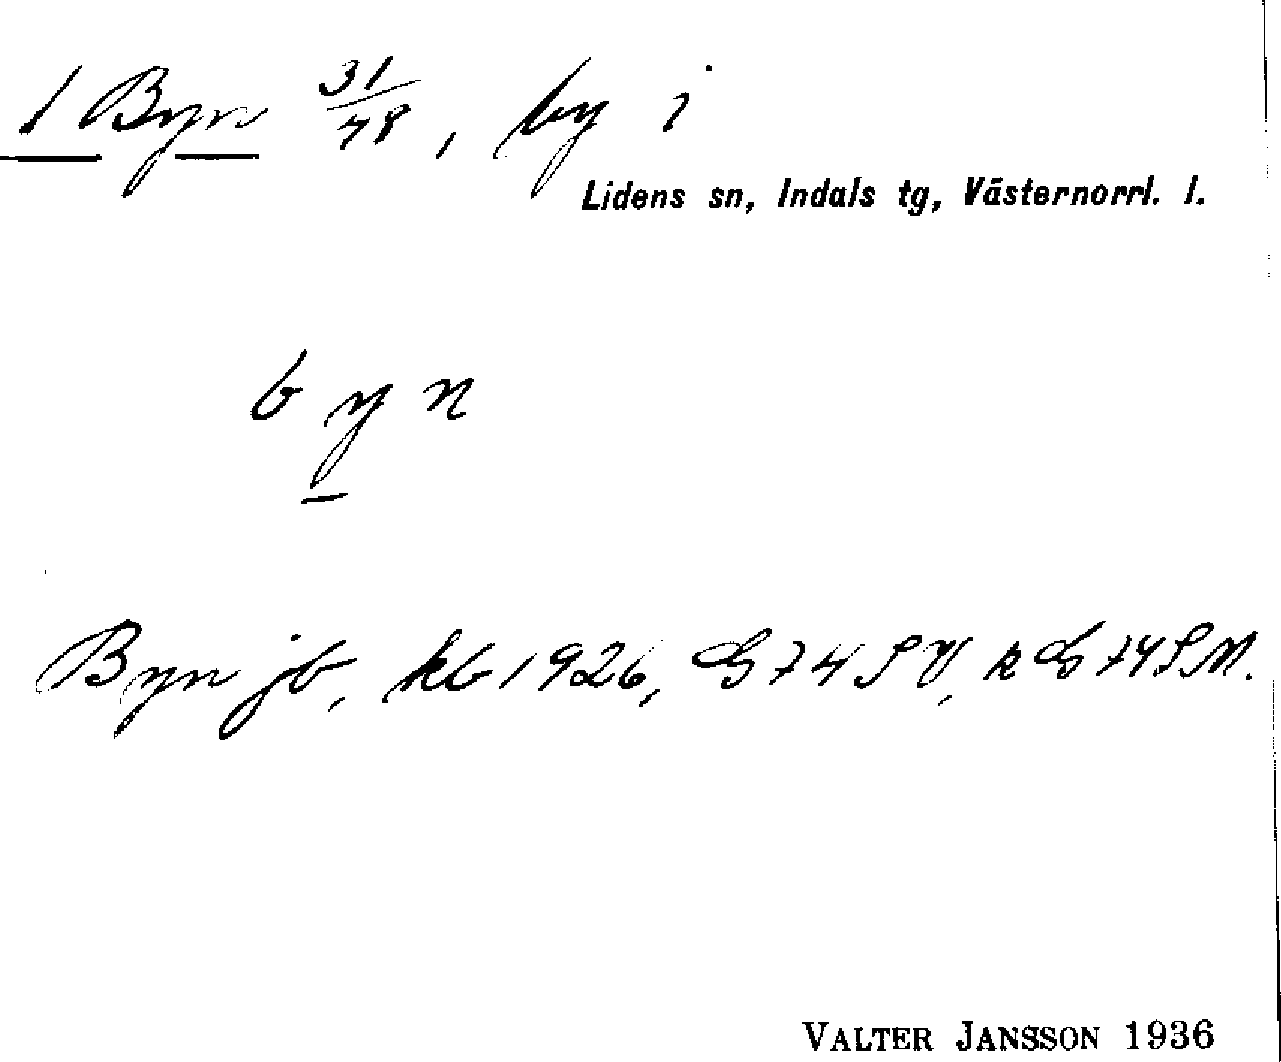 1 Byn 31/48, by i
Lidens sn, Indals tg, Västernorrl. l.
b y n
Byn jb, kb 1926, G 74 SV, k G 74 SM.
VALTER JANSSON 1936